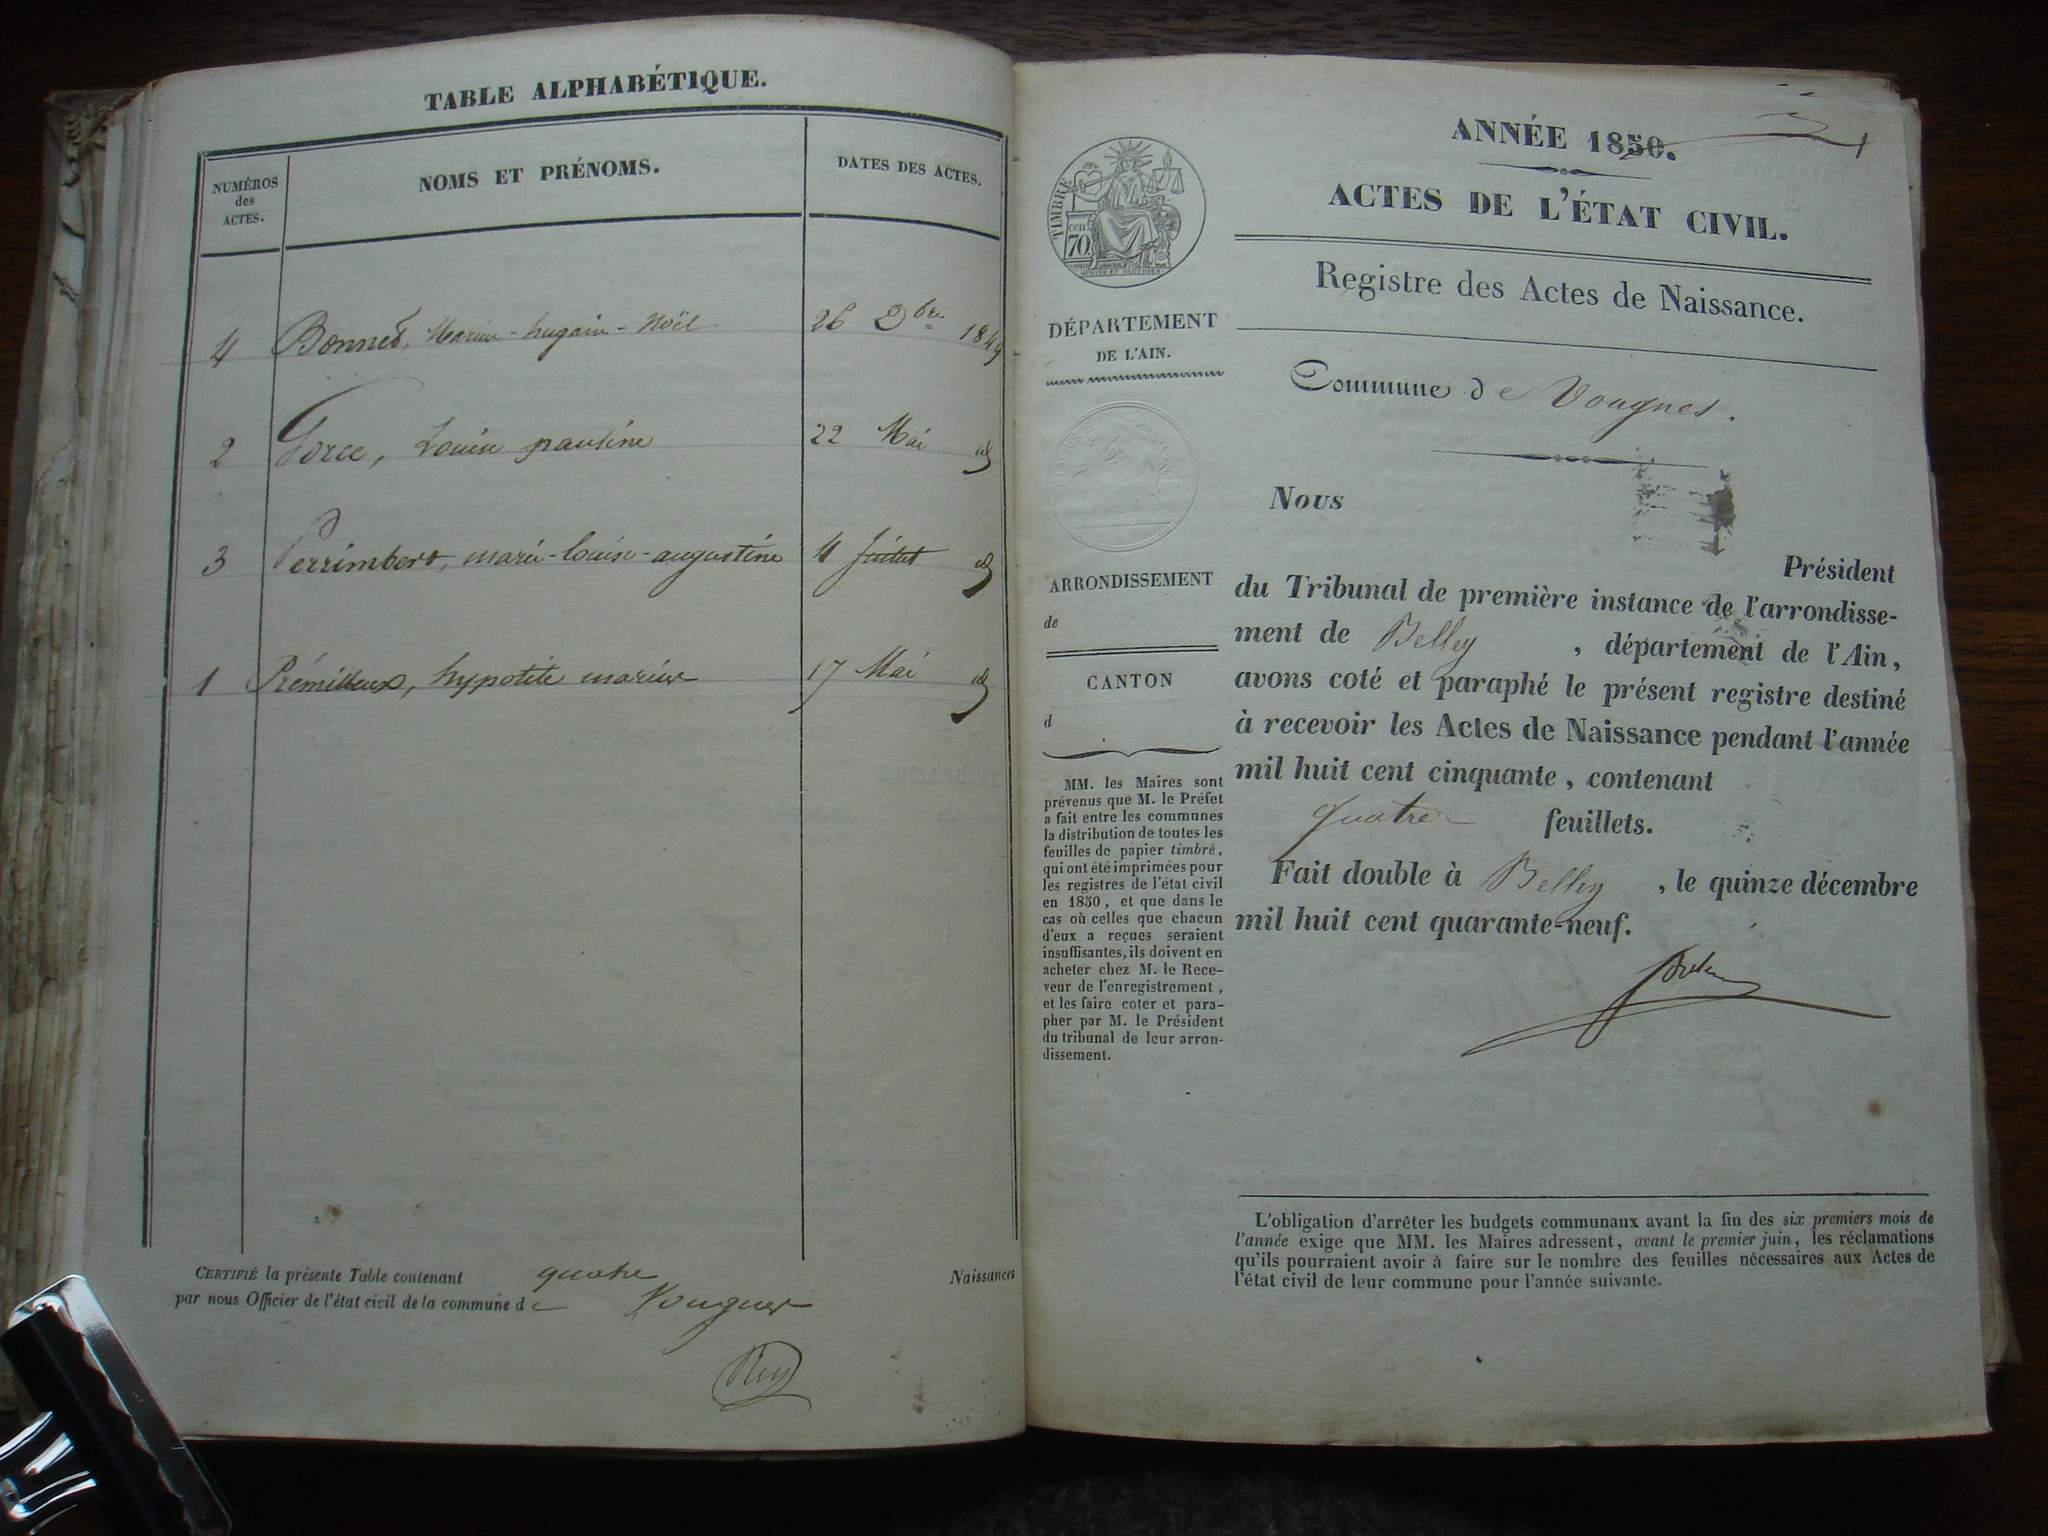 TABLE ALPHABÉTIQUE.
NUMÉROS des ACTES.
NOMS ET PRÉNOMS.
DATES DES ACTES.
4 Bonnet, Marie - hugain - Noël 26 Xbre 1849
2 Force, Louise pauline 22 Mai id
3 Perrimbert, marie - louise - augustine 4 Juillet id
1 Prémilleux, hypolite marius 17 Mai id
CERTIFIÉ la présente Table contenant quatre Naissances
par nous Officier de l'état civil de la commune de Vougnes
Rey
1
ANNÉE 1850.
ACTES DE L'ÉTAT CIVIL.
Registre des Actes de Naissance.
TIMBRE
70 cen
DÉPARTEMENT
DE L'AIN.
ARRONDISSEMENT
de
CANTON
d
MM. les Maires sont
prévenus que M. le Préfet
a fait entre les communes
la distribution de toutes les
feuilles de papier timbré,
qui ont été imprimées pour
les registres de l'état civil
en 1850, et que dans le
cas où celles que chacun
d'eux a reçues seraient
insuffisantes, ils doivent en
acheter chez M. le Rece-
veur de l'enregistrement,
et les faire coter et para-
pher par M. le Président
du tribunal de leur arron-
dissement.
Commune de Vougnes.
Nous
Président
du Tribunal de première instance de l'arrondisse-
ment de Belley, département de l'Ain,
avons coté et paraphé le présent registre destiné
à recevoir les Actes de Naissance pendant l'année
mil huit cent cinquante, contenant
quatre feuillets.
Fait double à Belley, le quinze décembre
mil huit cent quarante-neuf.
L'obligation d'arrêter les budgets communaux avant la fin des six premiers mois de
l'année exige que MM. les Maires adressent, avant le premier juin, les réclamations
qu'ils pourraient avoir à faire sur le nombre des feuilles nécessaires aux Actes de
l'état civil de leur commune pour l'année suivante.